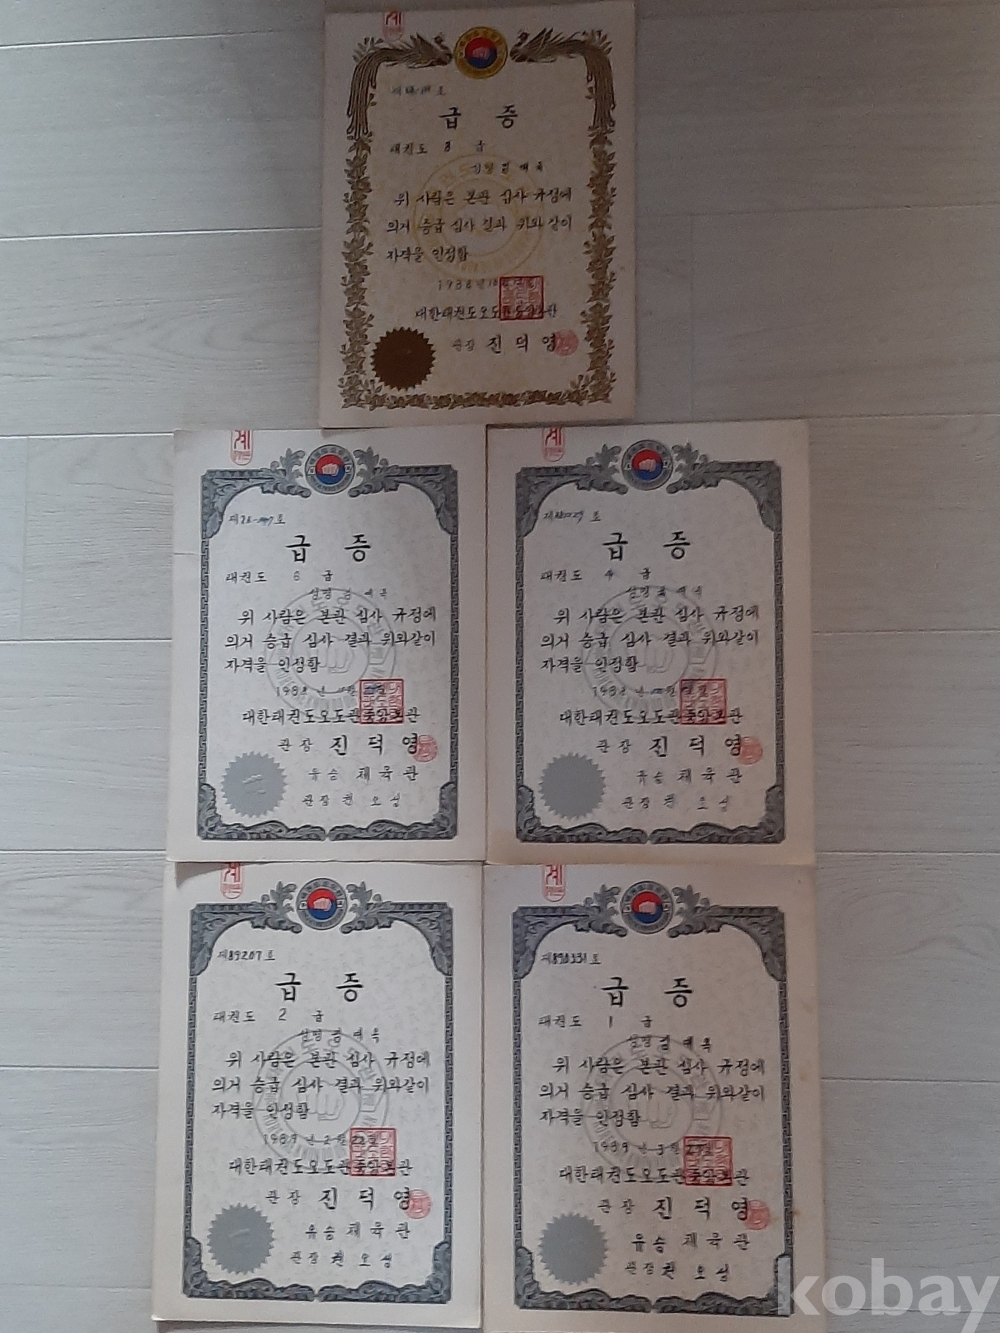 계
급 증
태권도 8 급
성명 김 예 옥
위 사람은 본관 심사 규정에
의거 승급 심사 결과 위와같이
자격을 인정함
1988년 10
대한태권도오도관중앙본관
관장 진 덕 영
계
급 증
태권도 6 급
성명 김 예 옥
위 사람은 본관 심사 규정에
의거 승급 심사 결과 위와같이
자격을 인정함
1988 년 11월
대한태권도오도관중앙본관
관장 진 덕 영
유승 체육관
관장 권 오 성
계
급 증
태권도 4 급
성명 김 예 옥
위 사람은 본관 심사 규정에
의거 승급 심사 결과 위와같이
자격을 인정함
1988 년
대한태권도오도관중앙본관
관장 진 덕 영
유승 체육관
관장 권 오 성
계
제89207호
급 증
태권도 2 급
성명 김 예 옥
위 사람은 본관 심사 규정에
의거 승급 심사 결과 위와같이
자격을 인정함
1989 년 2월 22일
대한태권도오도관중앙본관
관장 진 덕 영
유승 체육관
관장 권 오 성
계
제890331호
급 증
태권도 1 급
성명 김 예 옥
위 사람은 본관 심사 규정에
의거 승급 심사 결과 위와같이
자격을 인정함
1989 년 3월 27일
대한태권도오도관중앙본관
관장 진 덕 영
유승 체육관
관장 권 오 성
kobay